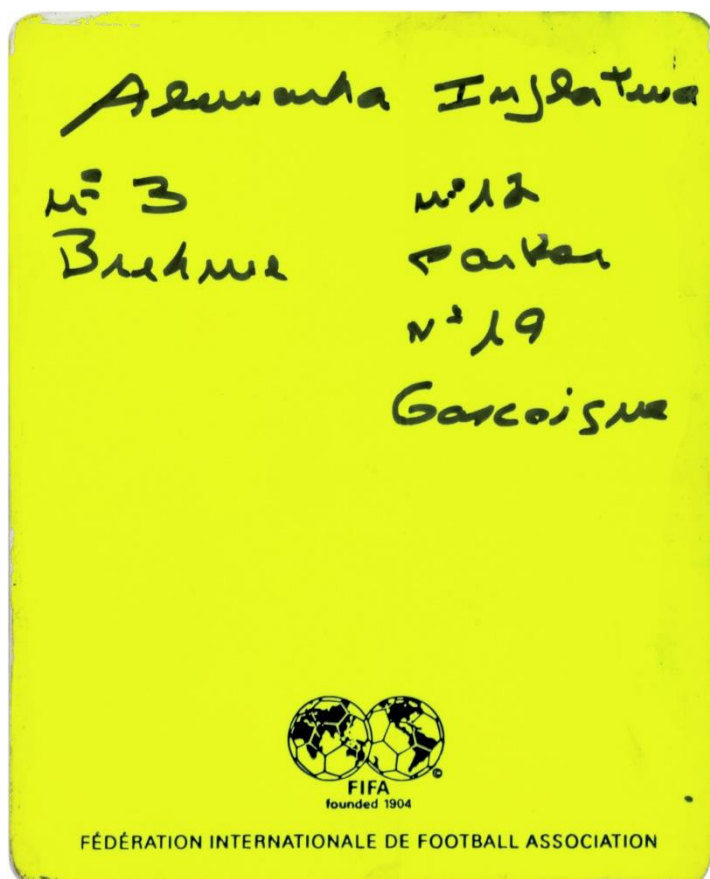 Alemanha Inglaterra
Nº 3 Nº 12
Brehme Parker
Nº 19
Gascoigne
FIFA
founded 1904
FÉDÉRATION INTERNATIONALE DE FOOTBALL ASSOCIATION